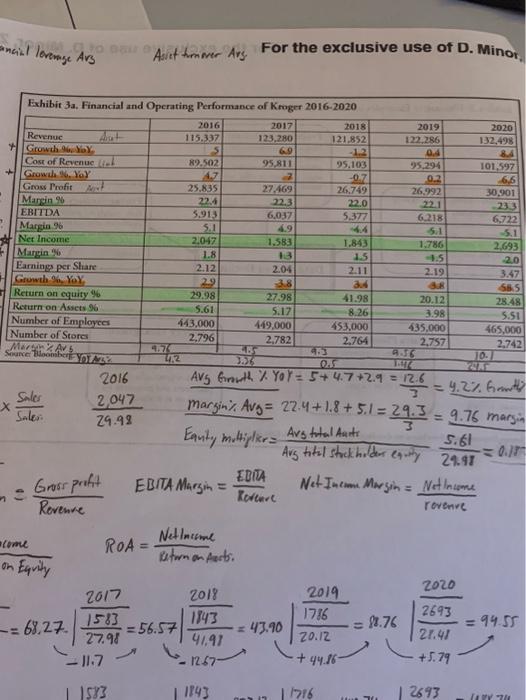 ancial leverage Avg Asset turnover Avg. For the exclusive use of D. Minor,
Exhibit 3a. Financial and Operating Performance of Kroger 2016-2020
2016 2017 2018 2019 2020
Revenue 115,337 123,280 121,852 122,286 132,498
Growth %, YoY 5 6.9 -1.2 0.4 8.4
Cost of Revenue 89,502 95,811 95,103 95,294 101,597
Growth %, YoY 4.7 7 -0.7 0.2 6.6
Gross Profit 25,835 27,469 26,749 26,992 30,901
Margin % 22.4 22.3 22.0 22.1 23.3
EBITDA 5,913 6,037 5,377 6,218 6,722
Margin % 5.1 4.9 4.4 5.1 5.1
Net Income 2,047 1,583 1,843 1,786 2,693
Margin % 1.8 1.3 1.5 1.5 2.0
Earnings per Share 2.12 2.04 2.11 2.19 3.47
Growth %, YoY 2.9 -3.8 3.4 3.8 58.5
Return on equity % 29.98 27.98 41.98 20.12 28.48
Return on Assets % 5.61 5.17 8.26 3.98 5.51
Number of Employees 443,000 449,000 453,000 435,000 465,000
Number of Stores 2,796 2,782 2,764 2,757 2,742
Margin % Avg 9.76 9.5 9.3 9.56 10.1
Source: Bloomberg YoY Avg % 4.2 3.36 0.5 1.46 24.5
2016 Avg Growth % YoY = 5 + 4.7 + 2.9 = 12.6 / 3 = 4.2% Growth
x Sales / Sales 2,047 / 29.98 margin % Avg = 22.4 + 1.8 + 5.1 = 29.3 / 3 = 9.76 margin
Equity multiplier = Avg total Assets / Avg total stockholders equity 5.61 / 29.98 = 0.187
= Gross profit / Revenue EBITA Margin = EBITA / Revenue Net Income Margin = Net Income / revenue
come / on Equity ROA = Net Income / Return on Assets.
2017 2018 2019 2020
= 68.27 | 1583 / 27.98 = 56.57 | 1843 / 41.98 = 43.90 | 1786 / 20.12 = 88.76 | 2693 / 28.48 = 94.55
- 11.7 - 12.67 + 44.86 + 5.79
1583 1843 1786 2693